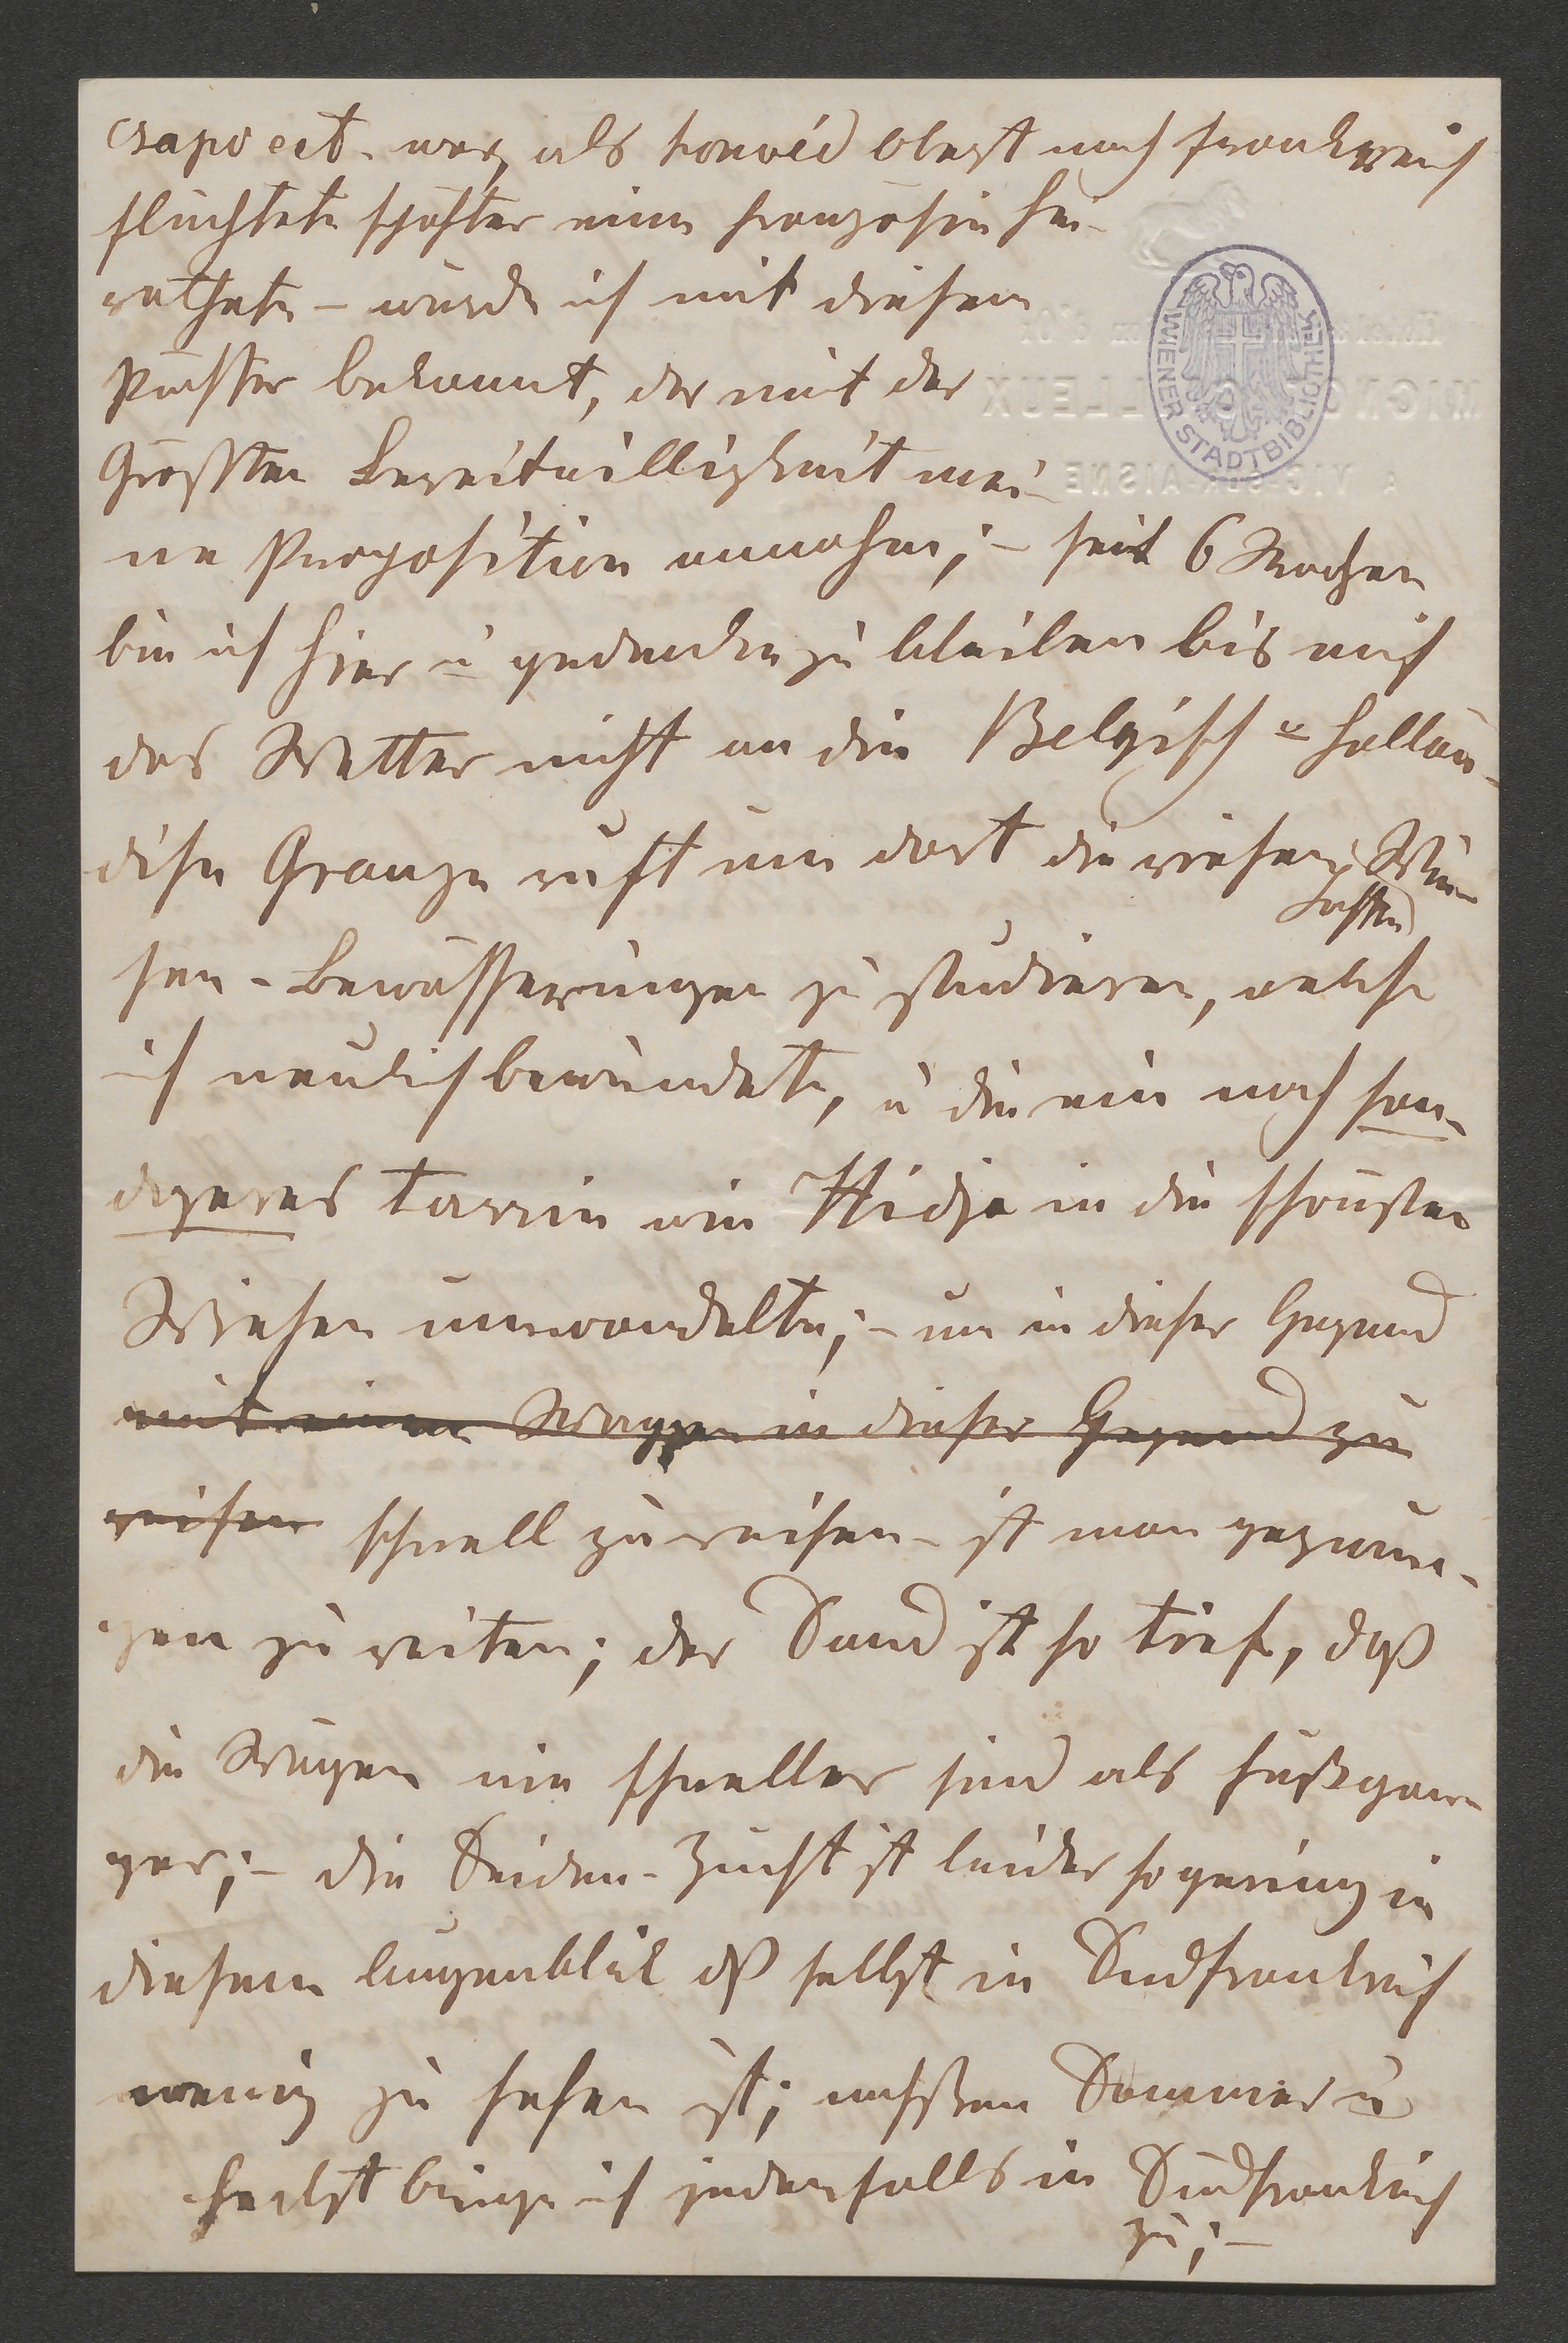 Csapo ect. war, als honvéd Oberst nach Frankreich
flüchtete später eine französin hei-
rathete – wurde ich mit diesem
Pächter bekannt, der mit der
Größten Bereitwilligkeit mei-
ne Proposition annahm; – seit 6 Wochen
bin ich hier u gedenke zu bleiben bis mich
das Wetter nicht an die Belgisch u hollän-
dische Gränze ruft um dort die riesen Wie-
sen-Bewässerungen zu studieren, welche
ich neulich bewundete, u die ein noch san-
digeres tarrin wie Hidja in die schönsten
Wiesen umwandelte; – um in dieser Gegend
mit einem Wagen in dieser Gegend zu
reisen schnell zu reisen – ist man gezwun-
gen zu reiten; der Sand ist so tief, daß
die Wägen nie schneller sind als fußgän-
ger; – die Seiden-Zucht ist leider so gering in
diesem Augenblik dß selbst in Südfrankreich
wenig zu sehen ist; nächsten Sommer u
herbst bringe ich jedenfalls in Südfrankreich
zu; –
WIENER STADTBIBLIOTHEK